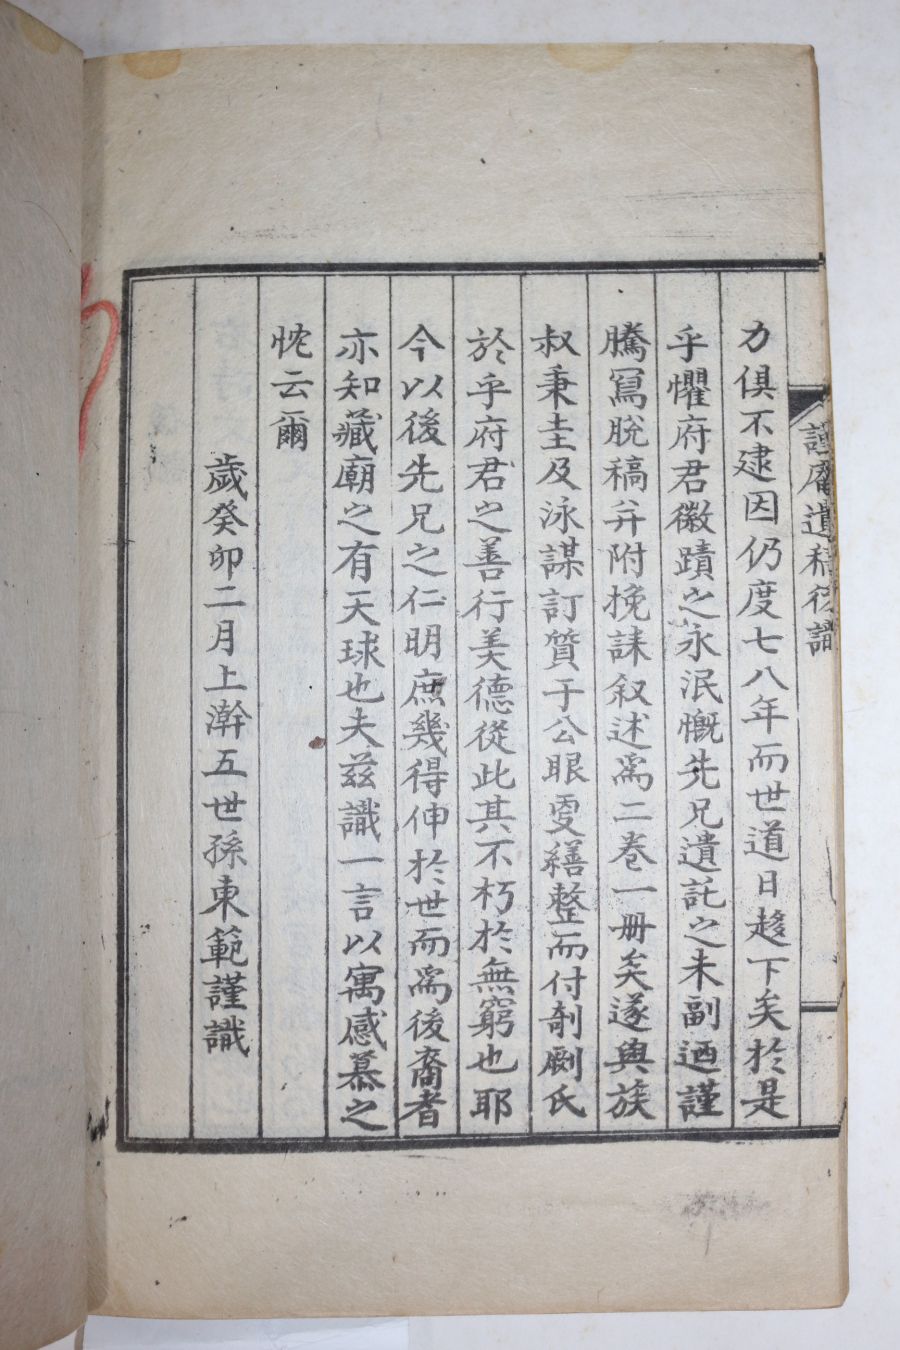 謹庵遺稿後識
力俱不逮因仍度七八年而世道日趍下矣於是
乎懼府君徽蹟之永泯慨先兄遺託之未副迺謹
騰寫脫稿并附挽誄叙述爲二卷一册矣遂與族
叔秉圭及泳謀訂質于公眼更繕整而付剞劂氏
於乎府君之善行美德從此其不朽於無窮也耶
今以後先兄之仁明庶幾得伸於世而爲後裔者
亦知藏廟之有天球也夫玆識一言以寓感慕之
忱云爾
歲癸卯二月上澣五世孫東範謹識